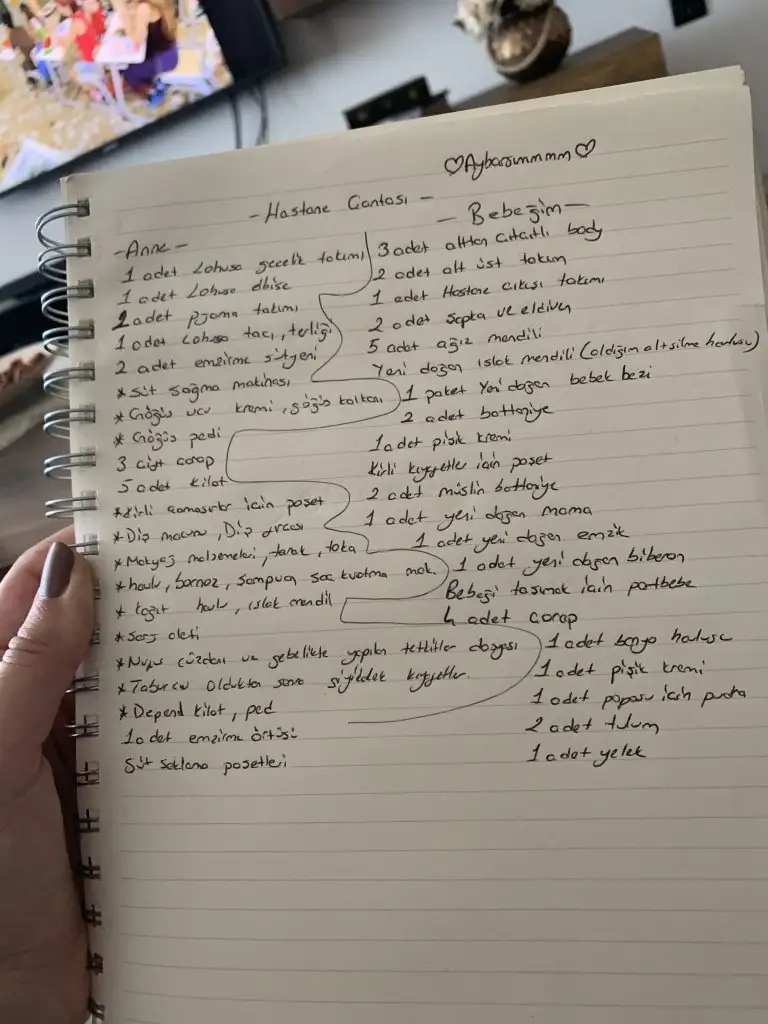 ♡Aybarsımmmm♡
- Hastane Çantası -
- Anne -
1 adet Lohusa gecelik takımı
1 adet Lohusa elbise
2 adet pijama takımı
1 adet Lohusa tacı, terliği
2 adet emzirme sütyeni
* Süt sağma makinası
* Göğüs ucu kremi, göğüs kalkanı
* Göğüs pedi
3 çift çorap
5 adet kilot
* Kirli çamaşırlar için poşet
* Diş macunu, Diş fırçası
* Makyaj malzemeleri, tarak, toka
* havlu, bornoz, şampuan, saç kurutma mak.
* Kağıt havlu, ıslak mendil
* Şarj aleti
* Nüfus cüzdanı ve gebelikte yapılan tetkikler dosyası
* Taburcu olduktan sonra giyilecek kıyafetler.
* Depend kilot, ped
1 adet emzirme örtüsü
Süt saklama poşetleri
- Bebeğim -
3 adet alttan çıtçıtlı body
2 adet alt üst takım
1 adet Hastane çıkışı takımı
2 adet şapka ve eldiven
5 adet ağız mendili
Yeni doğan ıslak mendili (aldığım alt silme havlusu)
1 paket Yeni doğan bebek bezi
2 adet battaniye
1 adet pişik kremi
Kirli kıyafetler için poşet
2 adet müslin battaniye
1 adet yeni doğan mama
1 adet yeni doğan emzik
1 adet yeni doğan biberon
Bebeği taşımak için portbebe
4 adet çorap
1 adet banyo havlusu
1 adet pişik kremi
1 adet poposu için pudra
2 adet tulum
1 adet yelek